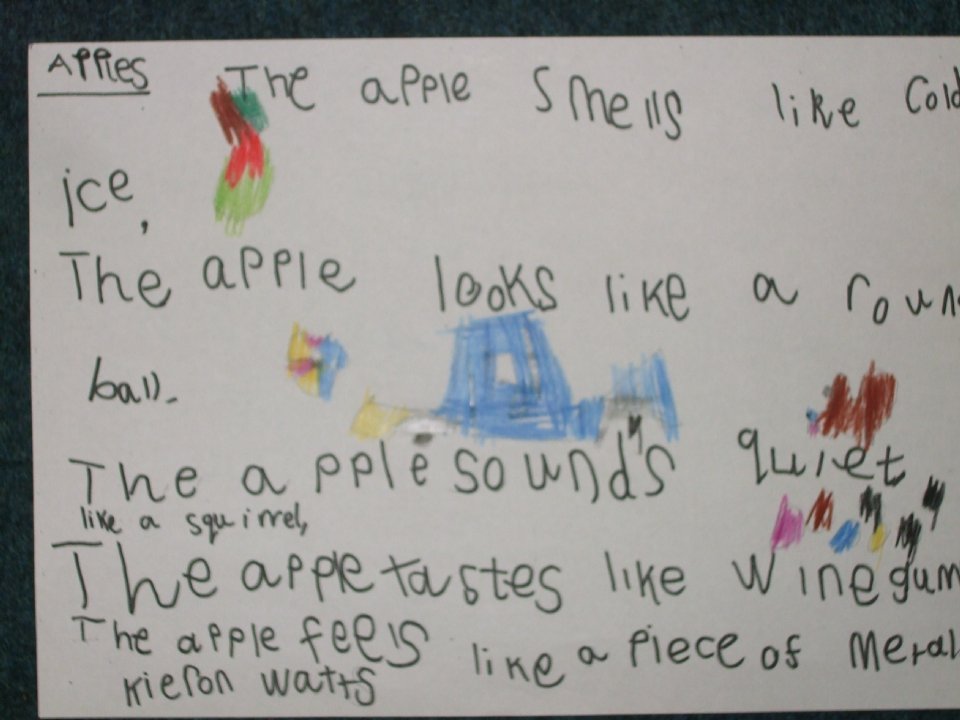 Apples
The apple smells like cold
ice,
The apple looks like a roun
ball.
The apple sounds quiet
like a squirrel,
The apple tastes like winegum
The apple feels like a piece of metal
kieron watts